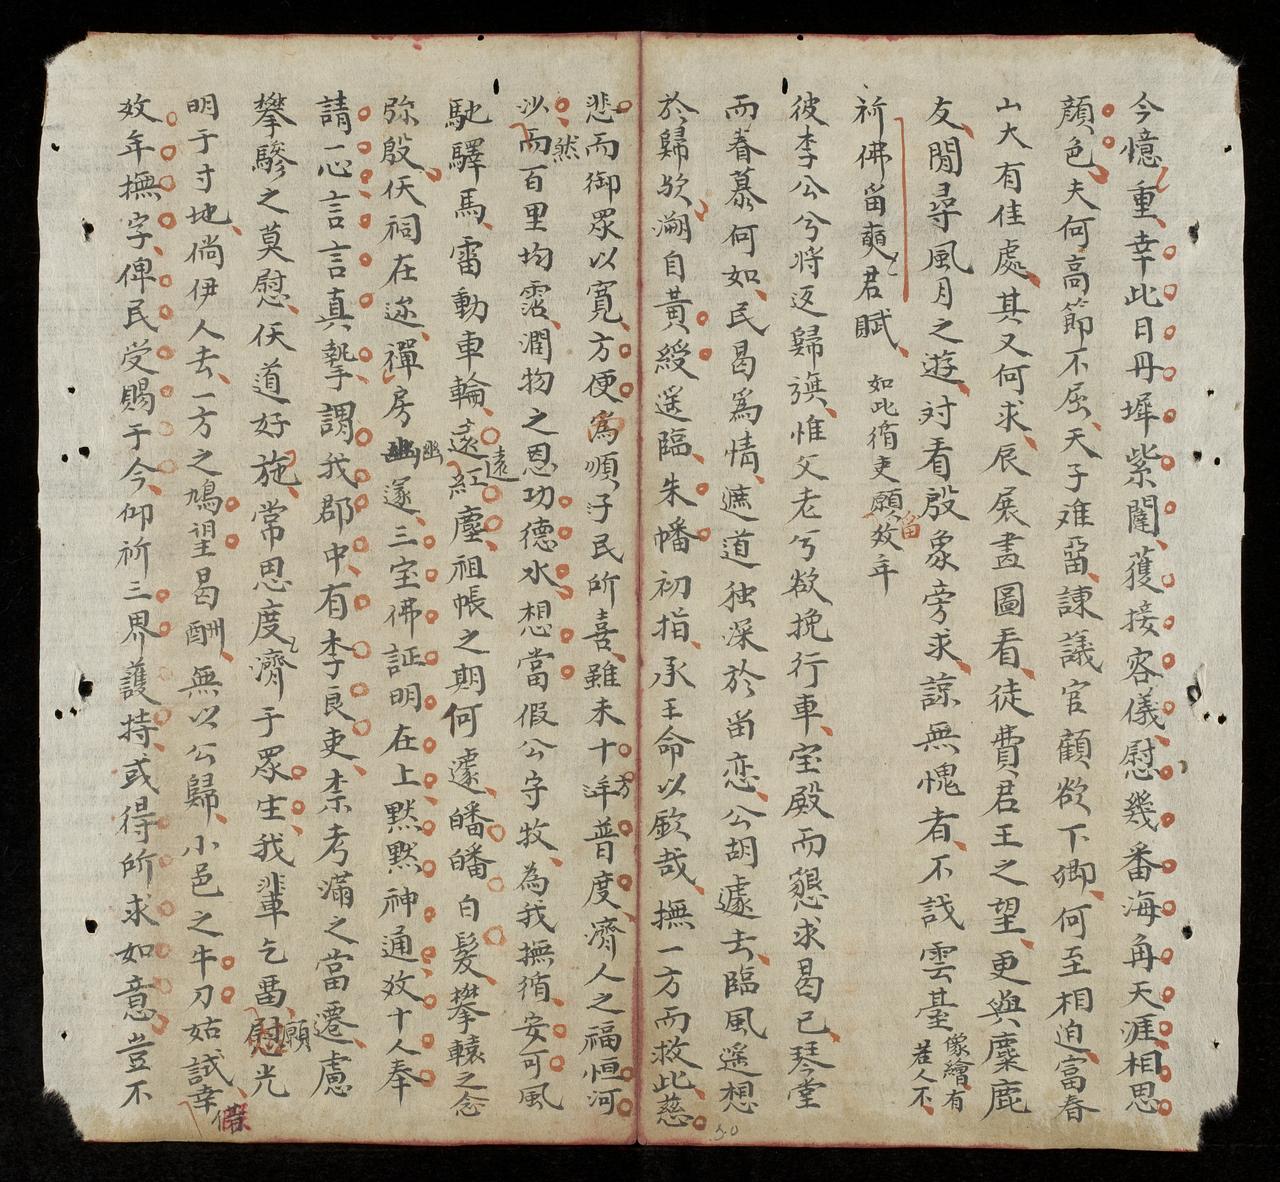 今憶重幸此日丹墀紫闥獲接容儀慰幾番海角天涯相思
顏色夫何高節不屈天子难畱諌議官顧欲下卿何至相迫富春
山大有佳處其又何求辰展畫圖看徒費君王之望更與麋鹿
友閒尋風月之遊対看殷象旁求諒無愧者不戔雲䑓像繪有若人不
祈佛畱奭君賦 如此循吏願畱数年
彼李公兮將返歸旗惟父老兮欲挽行車宝殿而懇求曷已琴堂
而眷慕何如民曷爲情遮道独深於畱恋公胡遽去臨風遥想
於歸欤溯自黃綬遥臨朱幡初指承王命以欽哉撫一方而救此慈
悲而御眾以寬方便爲順子民所喜雖未十年方普度濟人之福恒河
沙然而百里均霑潤物之恩功德水想當假公守牧為我撫循安可風
馳驛馬雷動車輪遠紅塵祖帳之期何遽皤皤白髮攀轅之念
弥殷佅祠在迩禪房幽邃三宝佛証明在上黙黙神通效十人奉
請一心言言真摯謂我郡中有李良吏柰考滿之當遷慮
攀驂之莫慰佅道好施常思度濟于眾生我輩乞畱慰願光
明于寸地倘伊人去一方之鳩望曷酬無以公歸小邑之牛刀姑試幸借
数年撫字俾民受賜于今仰祈三界護持或得所求如意豈不
50